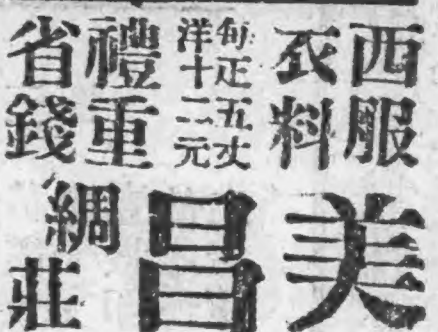 西服
衣料
每疋五丈
洋十二元
禮重
省錢
美昌綢莊